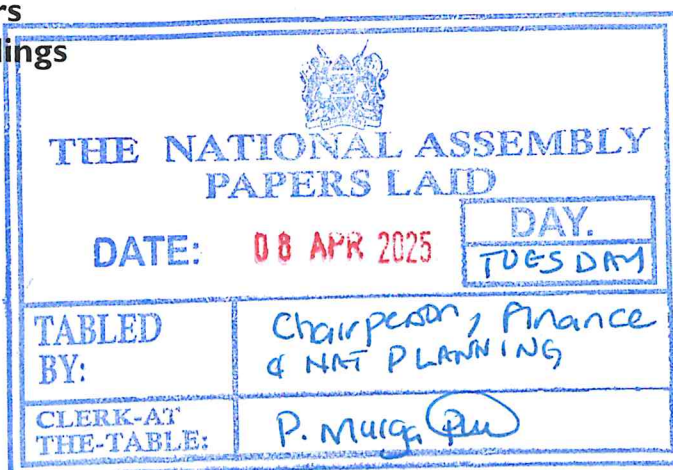 rs
lings
THE NATIONAL ASSEMBLY
PAPERS LAID
DATE: 08 APR 2025
DAY.
TUESDAY
TABLED
BY:
Chairperson, Finance
& NAT PLANNING
CLERK-AT
THE-TABLE:
P.